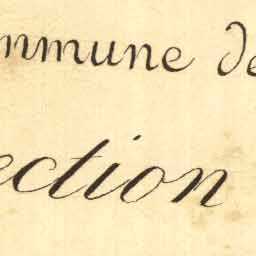 ommune de
ection